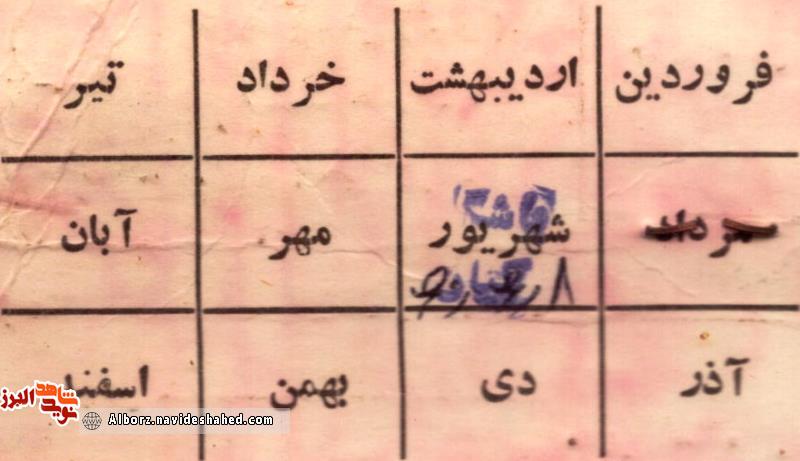 فروردین اردیبهشت خرداد تیر
مرداد شهریور مهر آبان
آذر دی بهمن اسفند
شاهد
نوید البرز
Alborz.navideshahed.com